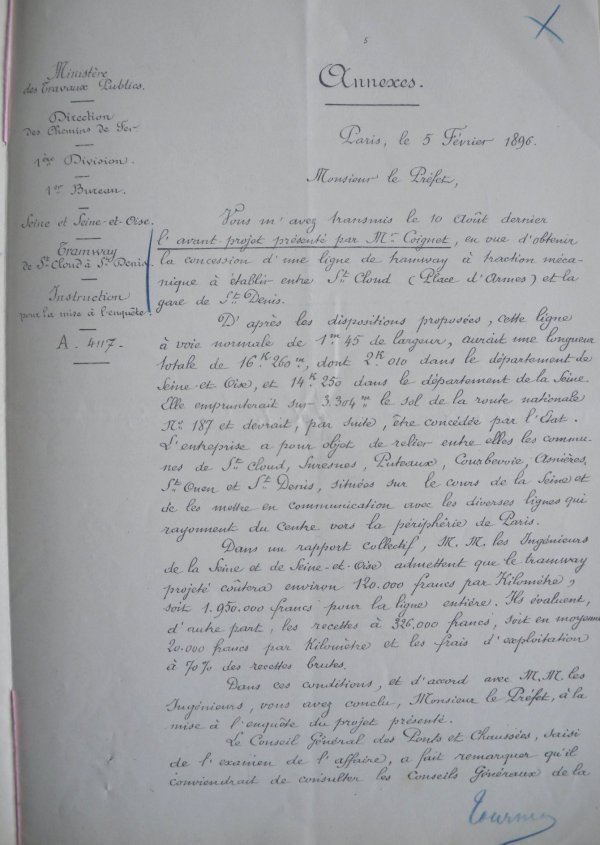 5
Annexes.
Ministère
des Travaux Publics.
Direction
des Chemins de Fer
1ère Division.
1er Bureau.
Seine et Seine-et-Oise.
Tramway
de St Cloud à St Denis.
Instruction
pour la mise à l'enquête.
A. 4117.
Paris, le 5 Février 1896.
Monsieur le Préfet,
Vous m'avez transmis le 10 Août dernier
l'avant-projet présenté par Mr Coignet, en vue d'obtenir
la concession d'une ligne de tramway à traction méca-
nique à établir entre St Cloud (Place d'Armes) et la
gare de St Denis.
D'après les dispositions proposées, cette ligne
à voie normale de 1m45 de largeur, aurait une longueur
totale de 16K 260m, dont 2K.010 dans le département de
Seine et Oise, et 14K 250 dans le département de la Seine.
Elle emprunterait sur 3.304m le sol de la route nationale
No 187 et devrait, par suite, être concédée par l'Etat.
L'entreprise a pour objet de relier entre elles les commu-
nes de St Cloud, Suresnes, Puteaux, Courbevoie, Asnières,
St Ouen et St Denis, situées sur le cours de la Seine et
de les mettre en communication avec les diverses lignes qui
rayonnent du centre vers la périphérie de Paris.
Dans un rapport collectif, M.M. les Ingénieurs
de la Seine et de Seine-et-Oise admettent que le tramway
projeté coûtera environ 120.000 francs par Kilomètre,
soit 1.950.000 francs pour la ligne entière. Ils évaluent,
d'autre part, les recettes à 326.000 francs, soit en moyenne
20.000 francs par Kilomètre et les frais d'exploitation
à 70% des recettes brutes.
Dans ces conditions, et d'accord avec M.M. les
Ingénieurs, vous avez conclu, Monsieur le Préfet, à la
mise à l'enquête du projet présenté.
Le Conseil Général des Ponts et Chaussées, saisi
de l'examen de l'affaire, a fait remarquer qu'il
conviendrait de consulter les Conseils Généraux de la